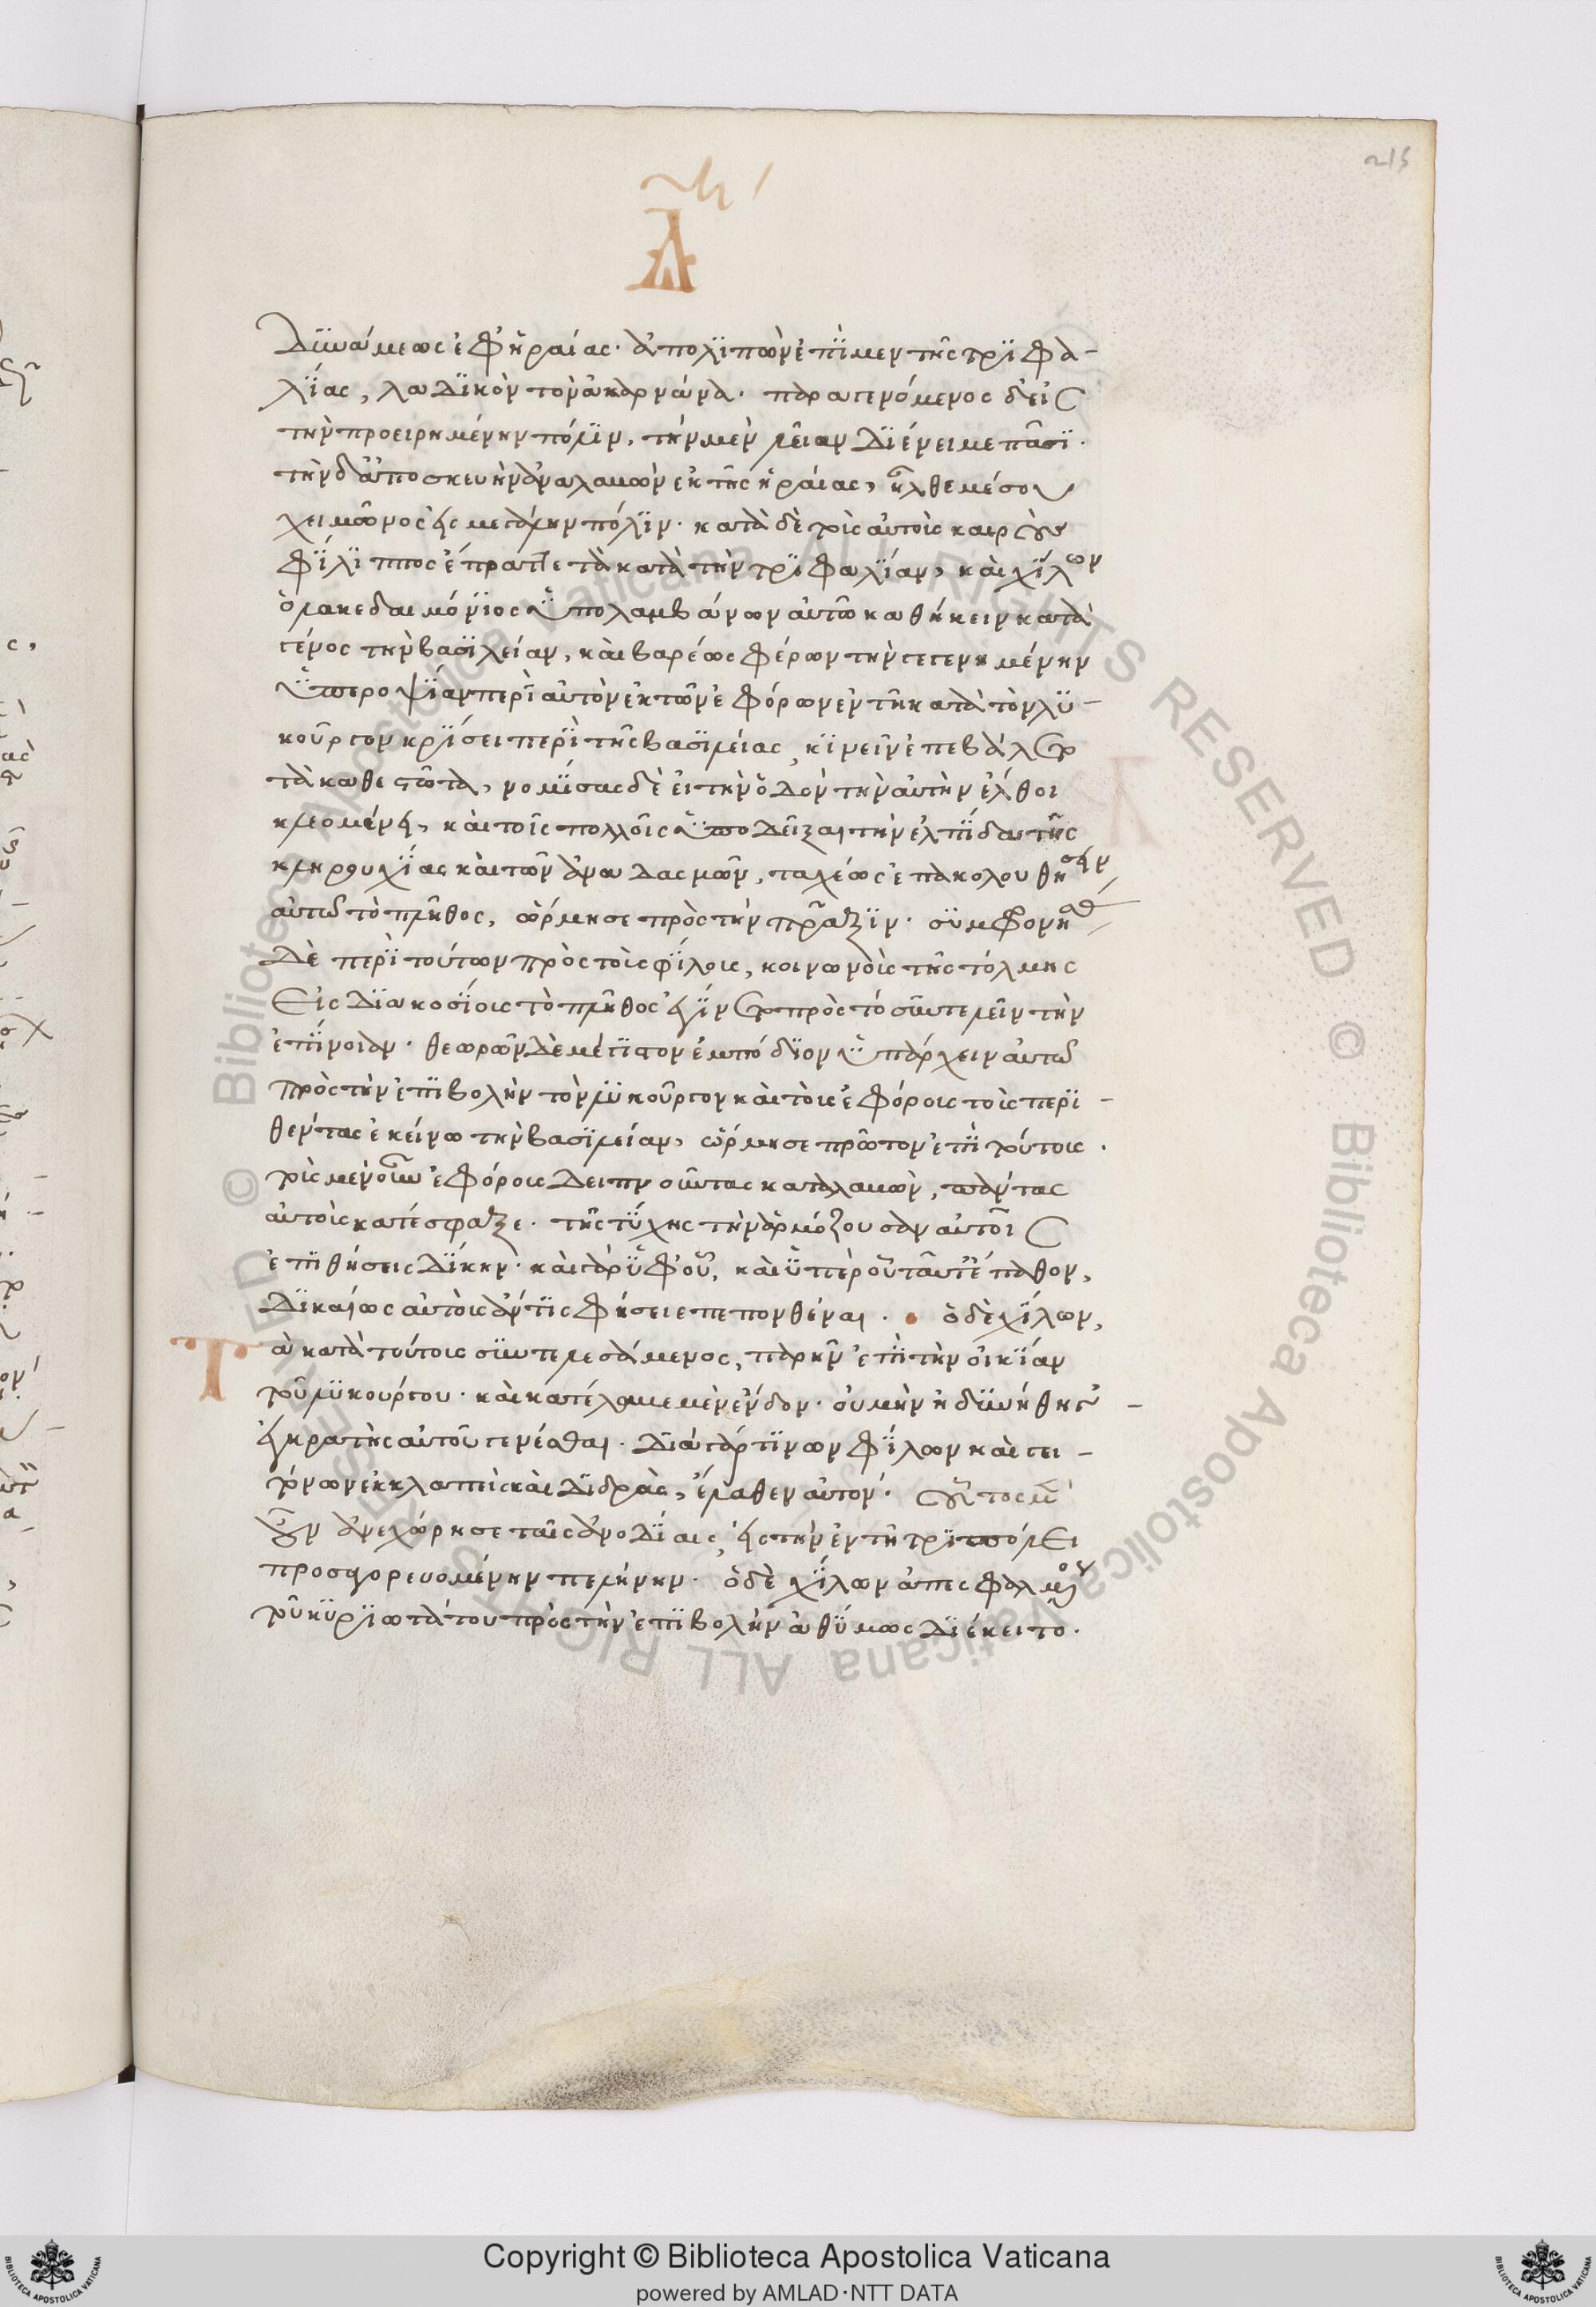 215
Δ
δυνάμεως ἐφ ἡραίας· ἀπολιπὼν ἐπὶ μὲν τῆς τριφα-
λίας, λαδικὸν τὸν ἀκαρνᾶνα· παραγενόμενος δ εἰς
τὴν προειρημένην πόλιν, τὴν μὲν λείαν διένειμε πᾶσι·
τὴν δ ἀποσκευὴν ἀναλαβὼν ἐκ τῆς ἡραίας, ἦλθε μέσου
χειμῶνος εἰς μεγάλην πόλιν· κατὰ δὲ τοὺς αὐτοὺς καιροὺς
φίλιππος ἔπραττε τὰ κατὰ τὴν τριφαλίαν, καὶ χίλων
ὁ λακεδαιμόνιος ὑπολαμβάνων αὐτῶ καθήκειν κατὰ
γένος τὴν βασιλείαν, καὶ βαρέως φέρων τὴν γεγενημένην
ὑπεροψίαν περὶ αὐτὸν ἐκ τῶν ἐφόρων ἐν τῆ κατὰ τὸν λυ-
κοῦργον κρίσει περὶ τῆς βασιλείας, κινεῖν ἐπεβάλετο
τὰ καθεστῶτα, νομίσας δὲ εἰ τὴν ὁδὸν τὴν αὐτὴν ἔλθοι
κλεομένει, καὶ τοῖς πολλοῖς ὑποδεῖξαι τὴν ἐλπίδα τῆς
κληρουχίας καὶ τῶν ἀναδασμῶν, ταχέως ἐπακολουθήσειν
αὐτῶ τὸ πλῆθος, ὥρμησε πρὸς τὴν πρᾶξιν· συμφρονήσας
δὲ περὶ τούτων πρὸς τοὺς φίλους, κοινωνοὺς τῆς τόλμης
εἰς διακοσίους τὸ πλῆθος εἶχε πρὸς τὸ συντελεῖν τὴν
ἐπίνοιαν· θεωρῶν δὲ μέγιστον ἐμπόδιον ὑπάρχειν αὐτῶ
πρὸς τὴν ἐπιβολὴν τὸν λυκοῦργον καὶ τοὺς ἐφόρους τοὺς περι-
θέντας ἐκείνω τὴν βασιλείαν, ὥρμησε πρῶτον ἐπὶ τούτους·
τοὺς μὲν οὖν ἐφόρους δειπνοῦντας καταλαβὼν, πάντας
αὐτοὺς κατέσφαξε· τῆς τύχης τὴν ἁρμόζουσαν αὐτοῖς
ἐπιθείσης δίκην· καὶ γὰρ ὑφ οὗ, καὶ ὑπὲρ οὗ ταῦτ ἔπαθον,
δικαίως αὐτοὺς ἄν τις φήσειε πεπονθέναι· ὁ δὲ χίλων,
τὰ κατὰ τούτους συντελεσάμενος, παρῆν ἐπὶ τὴν οἰκίαν
τοῦ λυκούργου· καὶ κατέλαβε μὲν ἔνδον· οὐ μὴν ἠδυνήθη γ
ἐγκρατὴς αὐτοῦ γενέσθαι· διὰ γάρ τινων φίλων καὶ γει-
τόνων ἐκκλαπεὶς καὶ διδρὰς, ἔλαθεν αὐτόν· οὗτος μὲν
οὖν ἀνεχώρησε ταῖς ἀνοδίαις, εἰς τὴν ἐν τῆ τριπόλει
προσαγορευομένην πελήνην· ὁ δὲ χίλων ἀπεσφαλμένος
τοῦ κυριωτάτου πρὸς τὴν ἐπιβολὴν ἀθύμως διέκειτο·
Copyright © Biblioteca Apostolica Vaticana
powered by AMLAD·NTT DATA